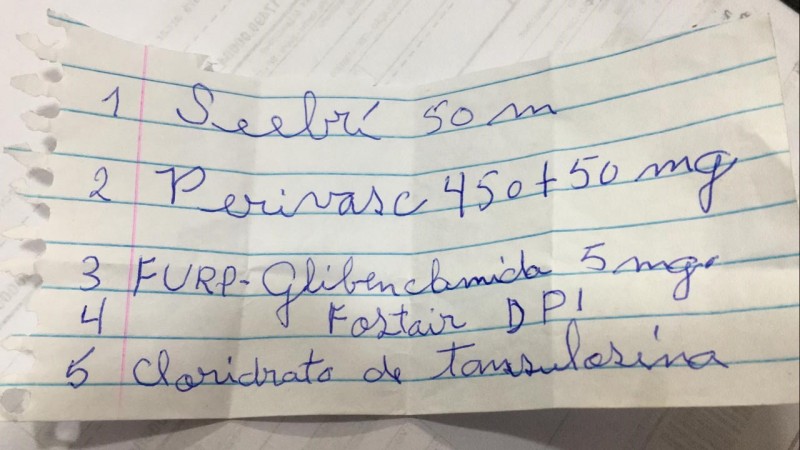 1 Seebrí 50 m
2 Perivasc 450+50 mg
3 FURP-Glibenclamida 5 mg.
4 Fostair DPI
5 Cloridrato de tansulosína